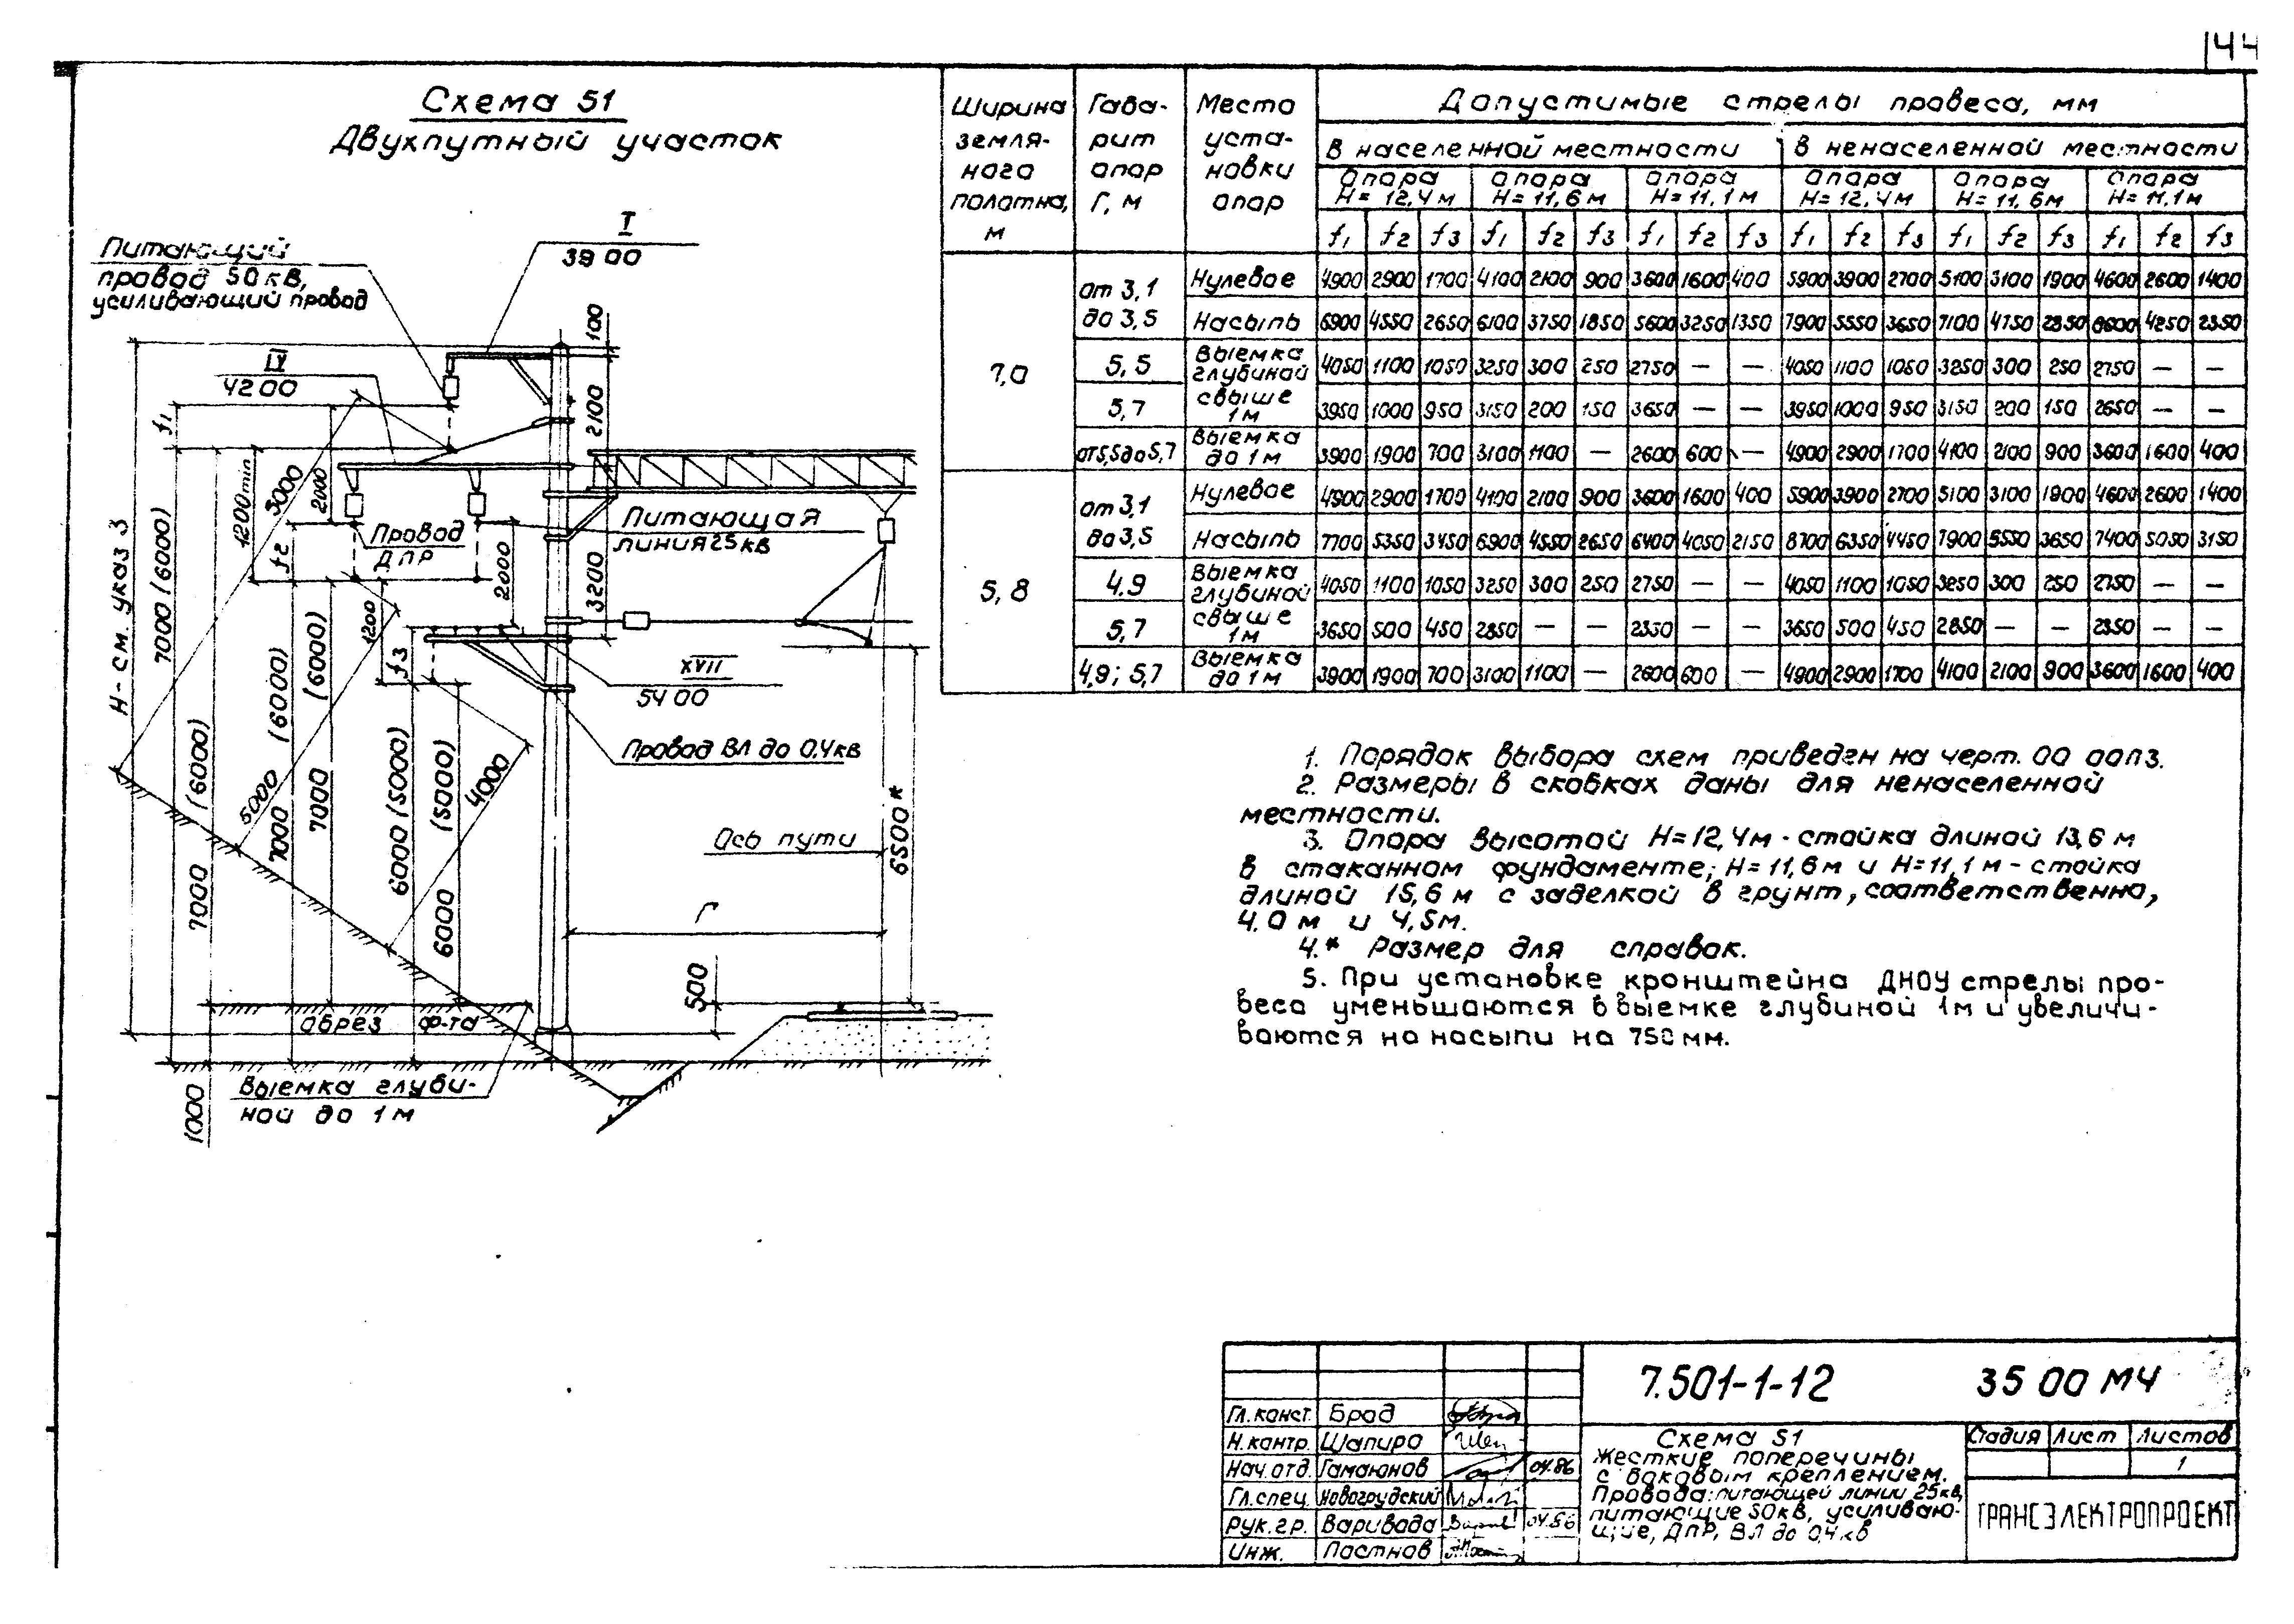 144
Схема 51
Двухпутный участок
Питающий
провод 50 кв,
усиливающий провод
I
39 00
IV
42 00
100
2100
3200
f1
1200 min
5000
2000
f2
Провод
ДПР
Питающая
линия 25 кв
2000
1200
f3
XVII
54 00
Провод ВЛ до 0,4 кв
H - см. указ 3
7000 (6000)
(6000)
7000
5000
7000 (6000)
7000 (6000)
6000 (5000)
(5000)
6000
4000
6500*
Ось пути
Г
500
обрез ф-та
1000
Выемка глуби-
ной до 1 м
Ширина земля-ного полотна, м | Габа-рит опор Г, м | Место уста-новки опор | Допустимые стрелы провеса, мм
В населенной местности | В ненаселенной местности
Опора H= 12,4 м | Опора H= 11,6 м | Опора H= 11,1 м | Опора H= 12,4 м | Опора H= 11,6 м | Опора H= 11,1 м
f1 f2 f3 f1 f2 f3 f1 f2 f3 f1 f2 f3 f1 f2 f3 f1 f2 f3
7,0 | от 3,1 до 3,5 | Нулевое 4900 2900 1700 4100 2100 900 3600 1600 400 5900 3900 2700 5100 3100 1900 4600 2600 1400
Насыпь 6900 4550 2650 6100 3750 1850 5600 3250 1350 7900 5550 3650 7100 4750 2850 6600 4250 2350
5,5 | Выемка глубиной свыше 1 м 4050 1100 1050 3250 300 250 2750 — — 4050 1100 1050 3250 300 250 2750 — —
5,7 3950 1000 950 3150 200 150 3650 — — 3950 1000 950 3150 200 150 2650 — —
от 5,5 до 5,7 | Выемка до 1 м 3900 1900 700 3100 1100 — 2600 600 — 4900 2900 1700 4100 2100 900 3600 1600 400
5,8 | от 3,1 до 3,5 | Нулевое 4900 2900 1700 4100 2100 900 3600 1600 400 5900 3900 2700 5100 3100 1900 4600 2600 1400
Насыпь 7700 5350 3450 6900 4550 2650 6400 4050 2150 8700 6350 4450 7900 5550 3650 7400 5050 3150
4,9 | Выемка глубиной свыше 1 м 4050 1100 1050 3250 300 250 2750 — — 4050 1100 1050 3250 300 250 2750 — —
5,7 3650 500 450 2850 — — 2350 — — 3650 500 450 2850 — — 2350 — —
4,9; 5,7 | Выемка до 1 м 3900 1900 700 3100 1100 — 2600 600 — 4900 2900 1700 4100 2100 900 3600 1600 400
1. Порядок выбора схем приведен на черт. 00 00ПЗ.
2. Размеры в скобках даны для ненаселенной
местности.
3. Опора высотой H=12,4м - стойка длиной 13,6 м
в стаканном фундаменте; H=11,6м и H=11,1м - стойка
длиной 15,6 м с заделкой в грунт, соответственно,
4,0 м и 4,5м.
4.* Размер для справок.
5. При установке кронштейна ДНОУ стрелы про-
веса уменьшаются в выемке глубиной 1м и увеличи-
ваются на насыпи на 750 мм.
7.501-1-12 35 00 МЧ
Гл. конст. Брод
Н. контр. Шапиро
Нач. отд. Гамаюнов 04.86
Гл. спец. Новогрудский
Рук. гр. Варивода 04.86
Инж. Постнов
Схема 51
Жесткие поперечины
с боковым креплением.
Провода: питающей линии 25кв,
питающие 50кв, усиливаю-
щие, ДПР, ВЛ до 0,4 кв
Стадия Лист Листов
1
ТРАНСЭЛЕКТРОПРОЕКТ